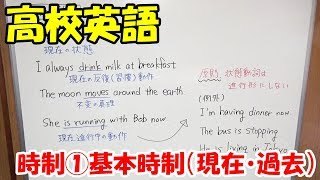 高校英語
現在の状態
I always drink milk at breakfast
現在の反復(習慣)動作
The moon moves around the earth
不変の真理
She is running with Bob now
現在進行中の動作
原則 状態動詞は
進行形にしない
(例外)
I'm having dinner now
The bus is stopping
He is living in Tokyo
時制①基本時制(現在・過去)